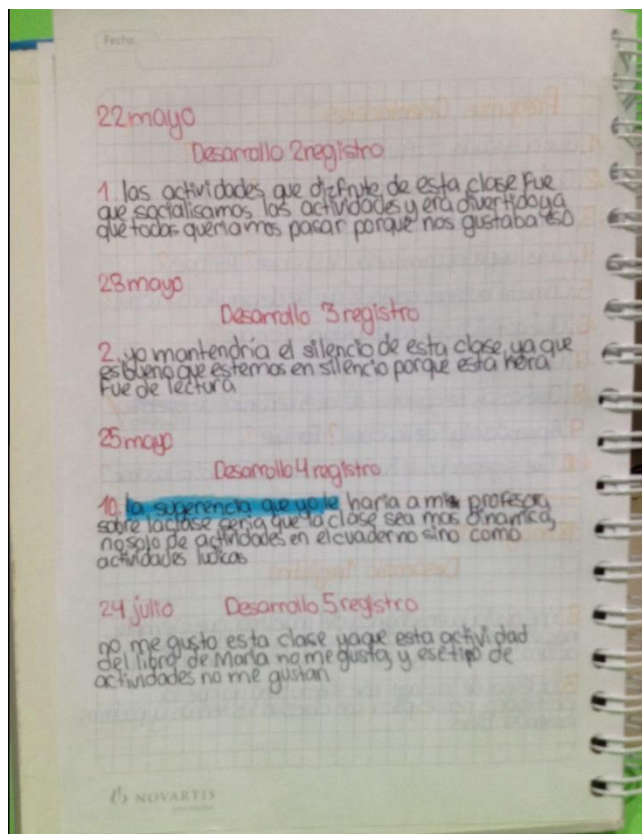 Fecha:
22 mayo
Desarrollo 2 registro
1. las actividades que dizfrute de esta clase fue
que socialisamos las actividades y era divertido ya
que todos queriamos pasar porque nos gustaba eso
23 mayo
Desarrollo 3 registro
2. yo mantendria el silencio de esta clase, ya que
es bueno que estemos en silencio porque esta hora
fue de lectura
25 mayo
Desarrollo 4 registro
10. la sugerencia que yo le haria a mi profesora
sobre la clase seria que la clase sea mas dinamica,
no solo de actividades en el cuaderno sino como
actividades ludicas
24 julio Desarrollo 5 registro
no me gusto esta clase ya que esta actividad
del libro de Maria no me gusta, y ese tipo de
actividades no me gustan
NOVARTIS